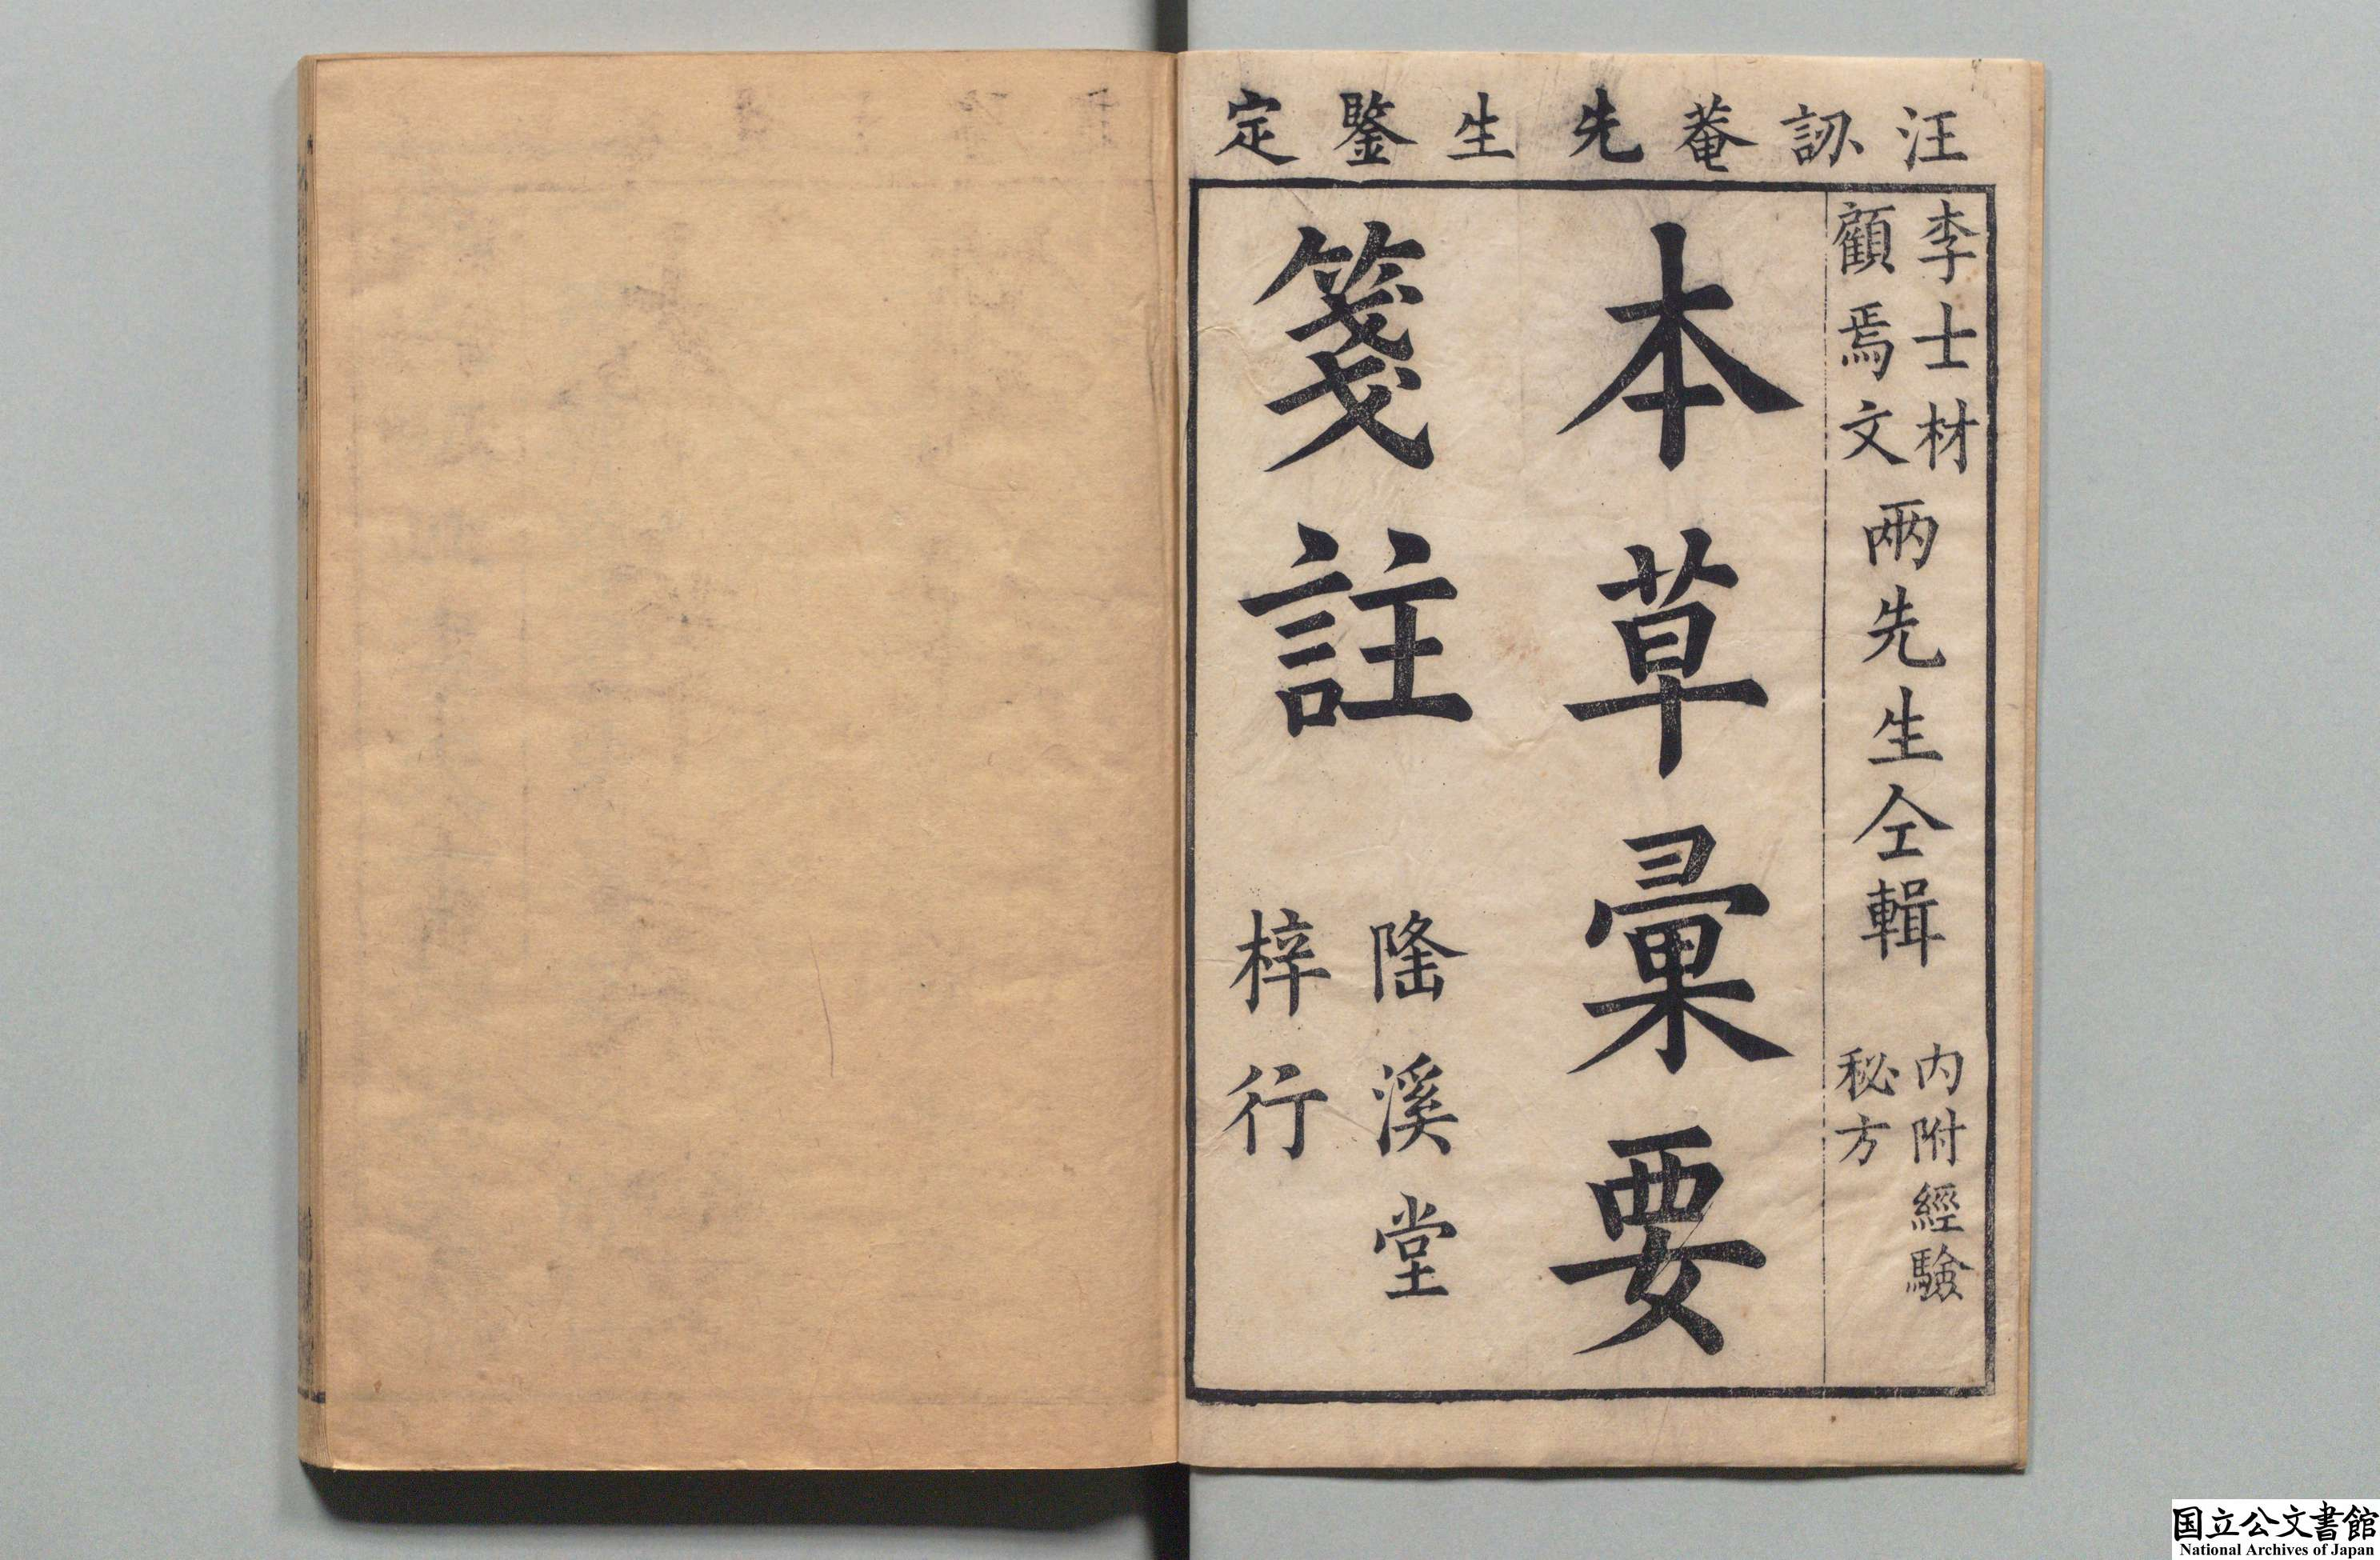 汪訒菴先生鑒定
李士材
顧焉文
兩先生仝輯
内附經驗
秘方
本草彙要
箋註
隆溪堂
梓行
国立公文書館
National Archives of Japan